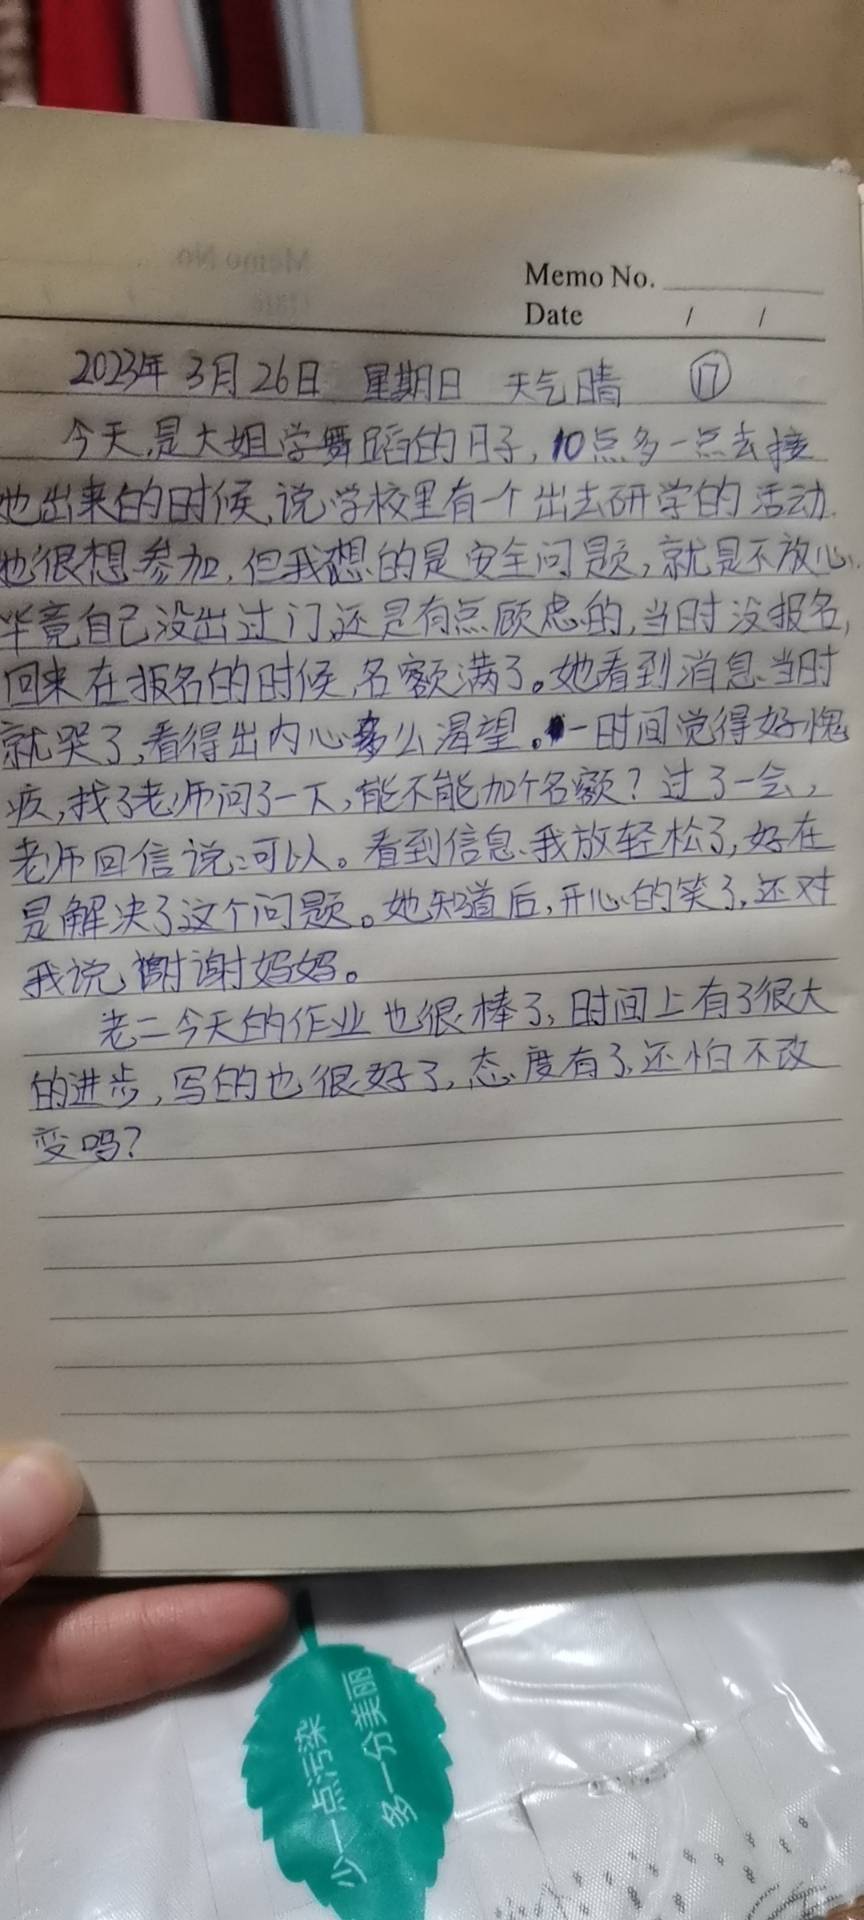 Memo No.
Date / /
2023年3月26日 星期日 天气晴 ⑰
今天,是大姐学舞蹈的日子,10点多一点去接
她出来的时候,说学校里有一个出去研学的活动.
她很想参加,但我想的是安全问题,就是不放心.
毕竟自己没出过门,还是有点顾虑的,当时没报名,
回来在报名的时候,名额满了。她看到消息、当时
就哭了,看得出内心多么渴望。一时间觉得好愧
疚,找了老师问了一下,能不能加个名额?过了一会,
老师回信说:可以。看到信息、我放轻松了,好在
是解决了这个问题。她知道后,开心的笑了,还对
我说,谢谢妈妈。
老二今天的作业也很棒了,时间上有了很大
的进步,写的也很好了,态度有了,还怕不改
变吗?
少一点污染
多一分美丽